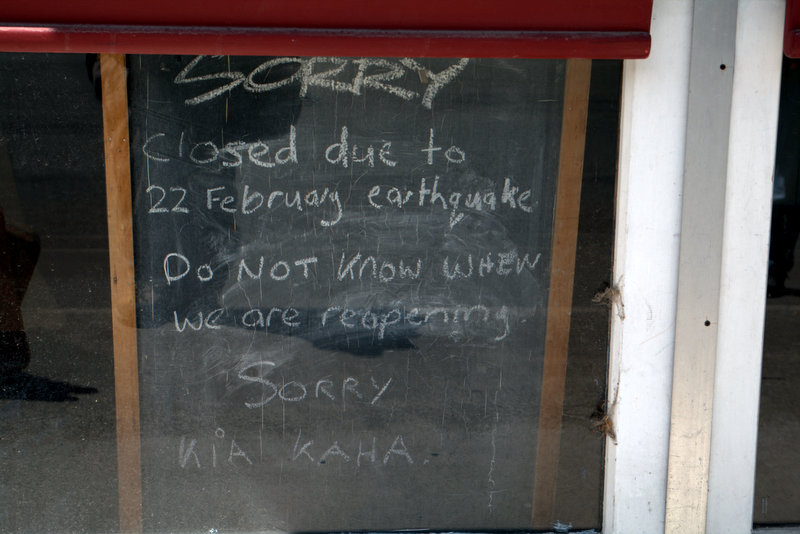 SORRY
Closed due to
22 February earthquake
DO NOT KNOW WHEN
we are reopening.
SORRY
KIA KAHA.